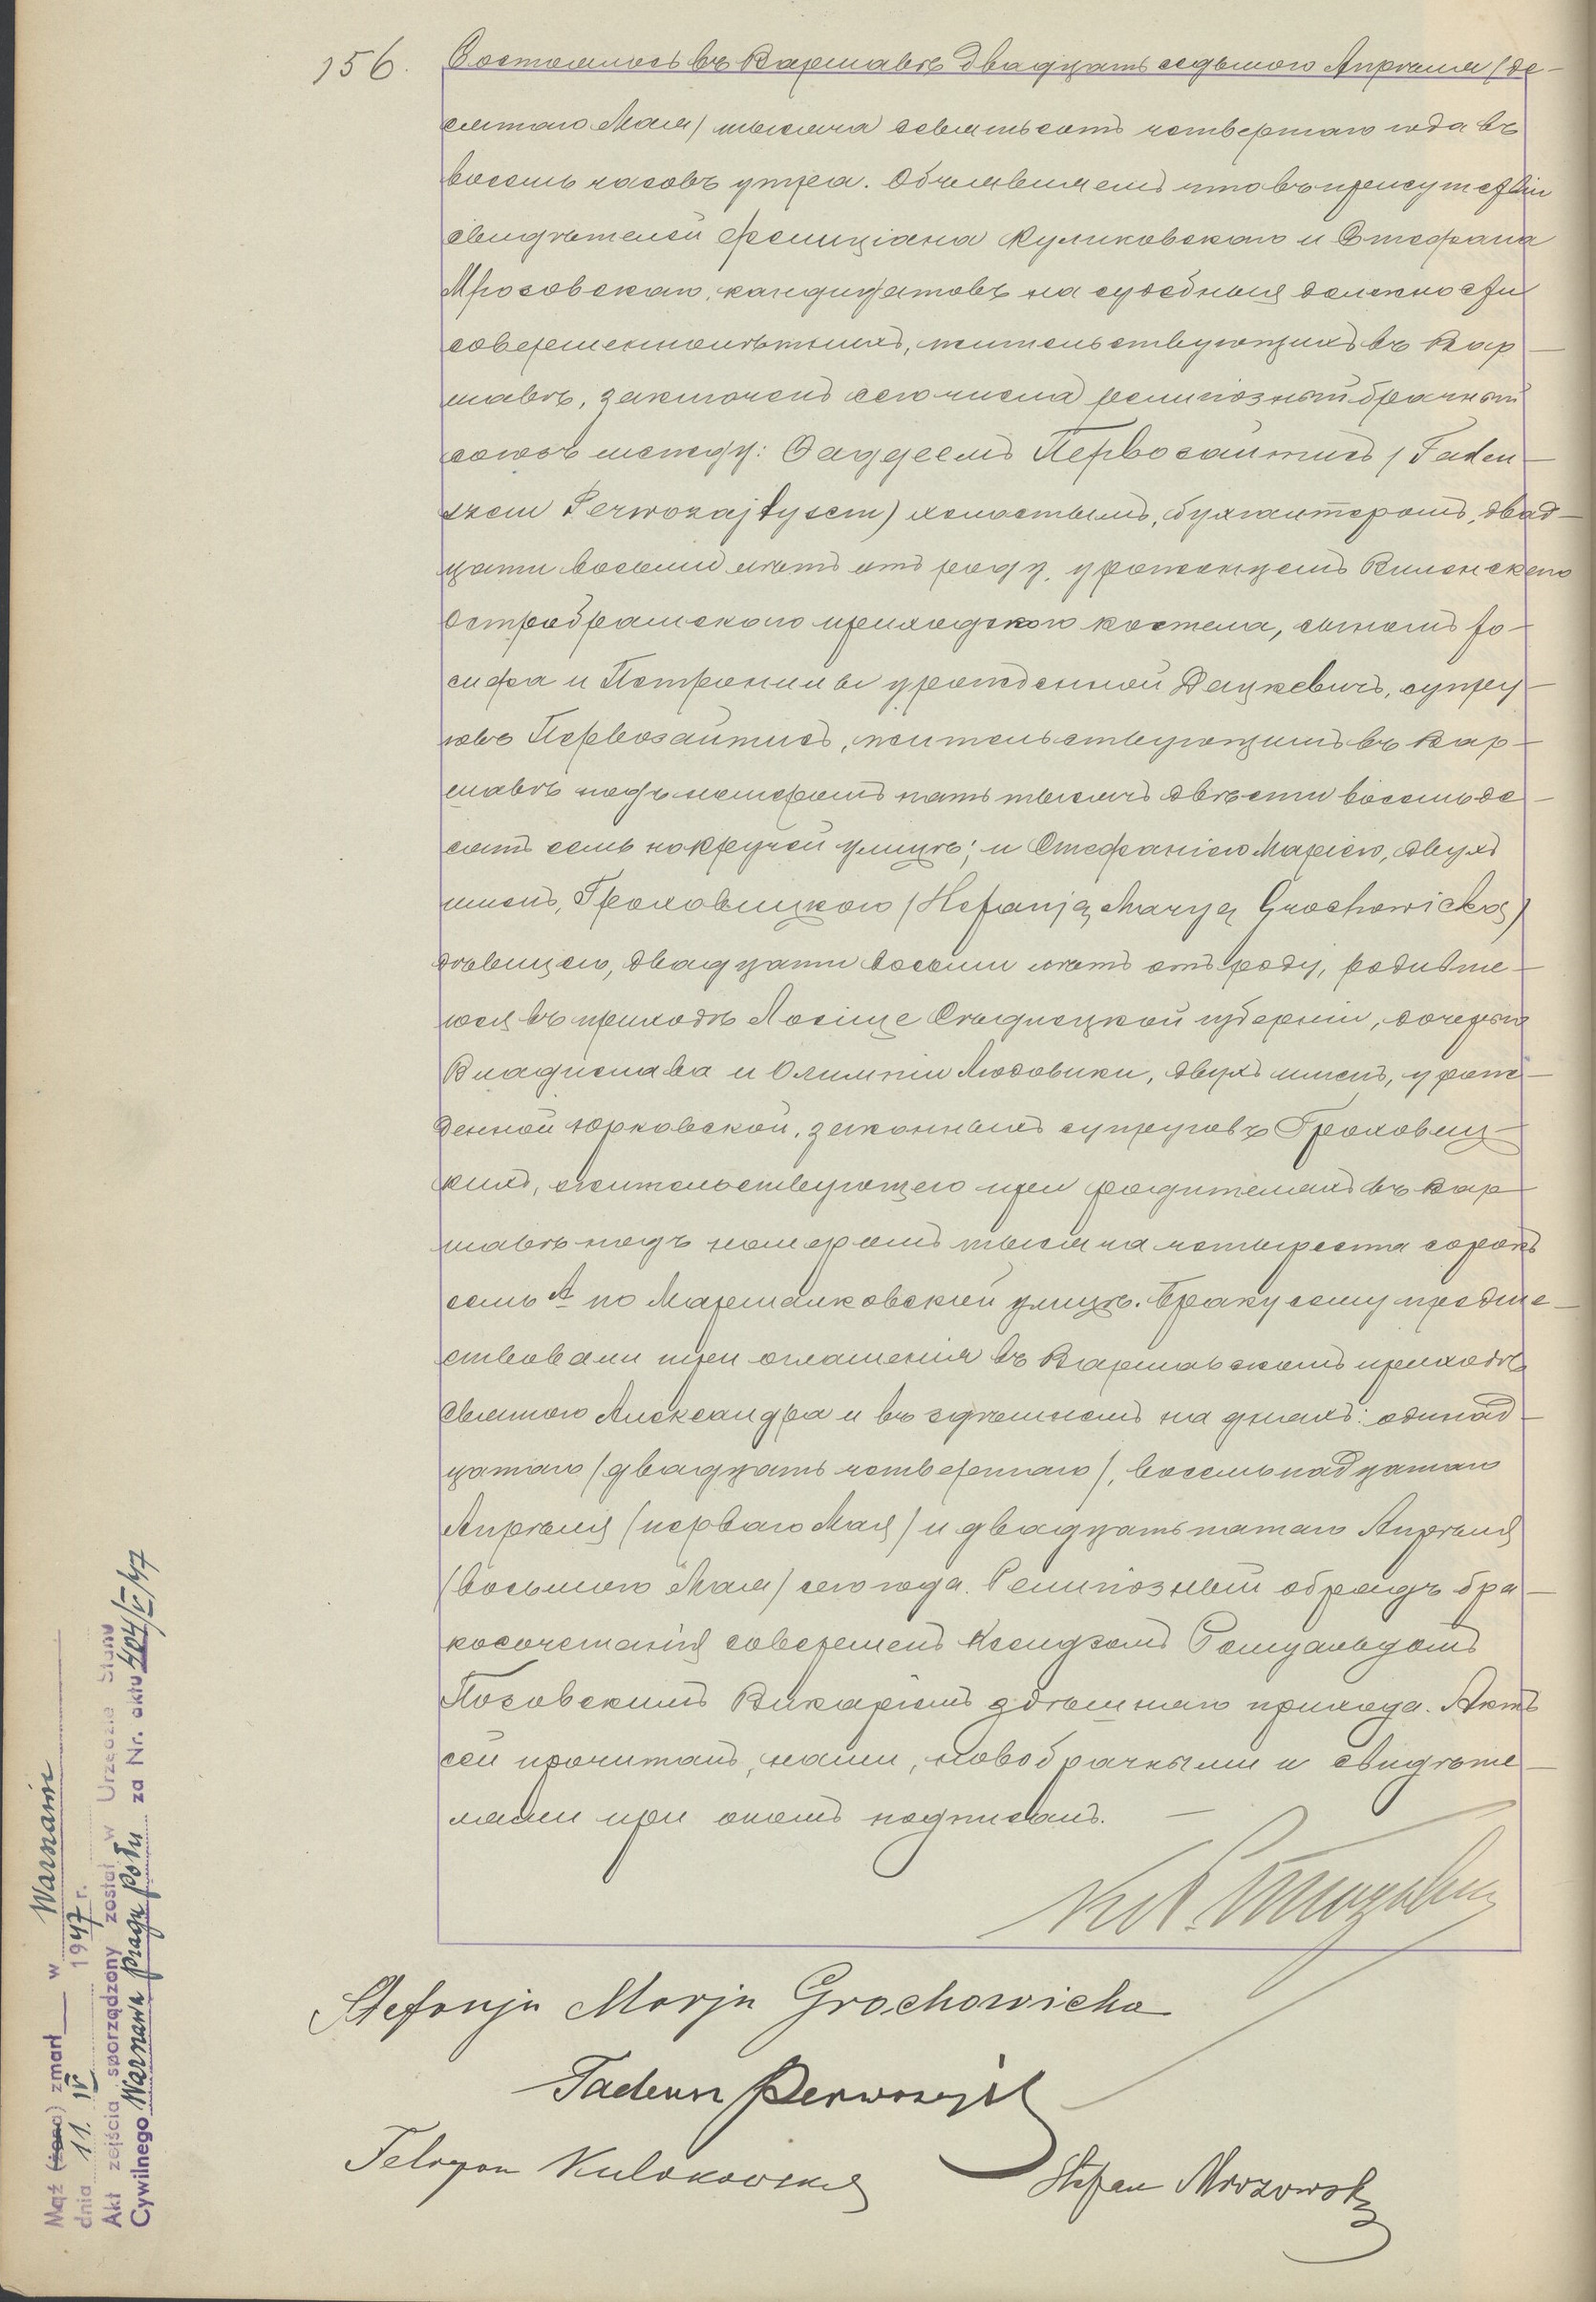 156.
Состоялось въ Варшавѣ двадцать седьмого Апрѣля /де-
сятаго Мая/ тысяча девятьсотъ четвертаго года въ
восемь часовъ утра. Объявляемъ что въ присутствіи
свидѣтелей Фелиціана Куликовскаго и Стефана
Мрозовскаго, кандидатовъ на судебныя должности
совершеннолѣтнихъ, жительствующихъ въ Вар-
шавѣ, заключенъ сего числа религіозный брачный
союзъ между: Фаддеемъ Первозайтись / Tadeu-
szem Perwozajtysem) холостымъ, бухгалтеромъ, двад-
цати восьми лѣтъ отъ роду, уроженцемъ Виленскаго
Остробрамскаго приходскаго костела, сыномъ Іо-
сифа и Петронели урожденной Дацкевичъ, супру-
говъ Первозайтисъ, жительствующимъ въ Вар-
шавѣ подъ номеромъ пять тысячъ двѣсти восемьде-
сятъ семь на Кручей улицѣ; и Стефаніею Маріею, двухъ
именъ, Гроховицкою /Stefanją Maryą Grochowicką)
дѣвицею, двадцати восьми лѣтъ отъ роду, родивше-
юся въ приходѣ Лосице Сѣдлецкой губерніи, дочерью
Владислава и Олимпіи Людовики, двухъ именъ, урож-
денной Юрковской, законныхъ супруговъ Гроховиц-
кихъ, жительствующею при родителяхъ въ Вар-
шавѣ подъ номеромъ тысяча четыреста сорокъ
семь А по Маршалковской улицѣ. Браку сему предше-
ствовали три оглашенія въ Варшавскомъ приходѣ
Святого Александра и въ здѣшнемъ на дняхъ: одинад-
цатаго /двадцать четвертаго/, восемьнадцатаго
Апрѣля /перваго Мая/ и двадцать пятаго Апрѣля
/восьмого Мая/ сего года. Религіозный обрядъ бра-
косочетанія совершенъ Ксендзомъ Ромуальдомъ
Викаріемъ здѣшняго прихода. Актъ
сей прочитанъ, нами, новобрачными и свидѣте-
лями при ономъ подписанъ.
Stefanja Marja Grochowicka
Tadeusz
Felicyan Kulikowski
Stefan Mrozowski
Mąż (żona) zmarł w Warszawie
dnia 11. IV 1947 r.
Akt zejścia sporządzony został w Urzędzie Stanu
Cywilnego Warszawa Praga Połu za Nr. aktu 404/IV/47